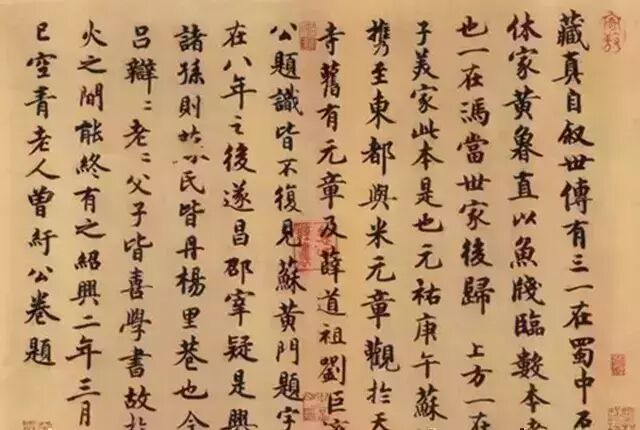 藏真自叙世傳有三一在蜀中石
休家黄魯直以魚牋臨數本者
也一在馮當世家後歸 上方一在
子美家此本是也元祐庚午蘇
攜至東都與米元章觀於天
寺舊有元章及薛道祖劉巨
公題識皆不復見蘇黄門題字
在八年之後遂昌邵宰疑是興
諸孫則
民皆丹楊里巷也今
吕辯二老二父子皆喜學書故於
火之間能終有之紹興二年三月
巳空青老人曾紆公卷題